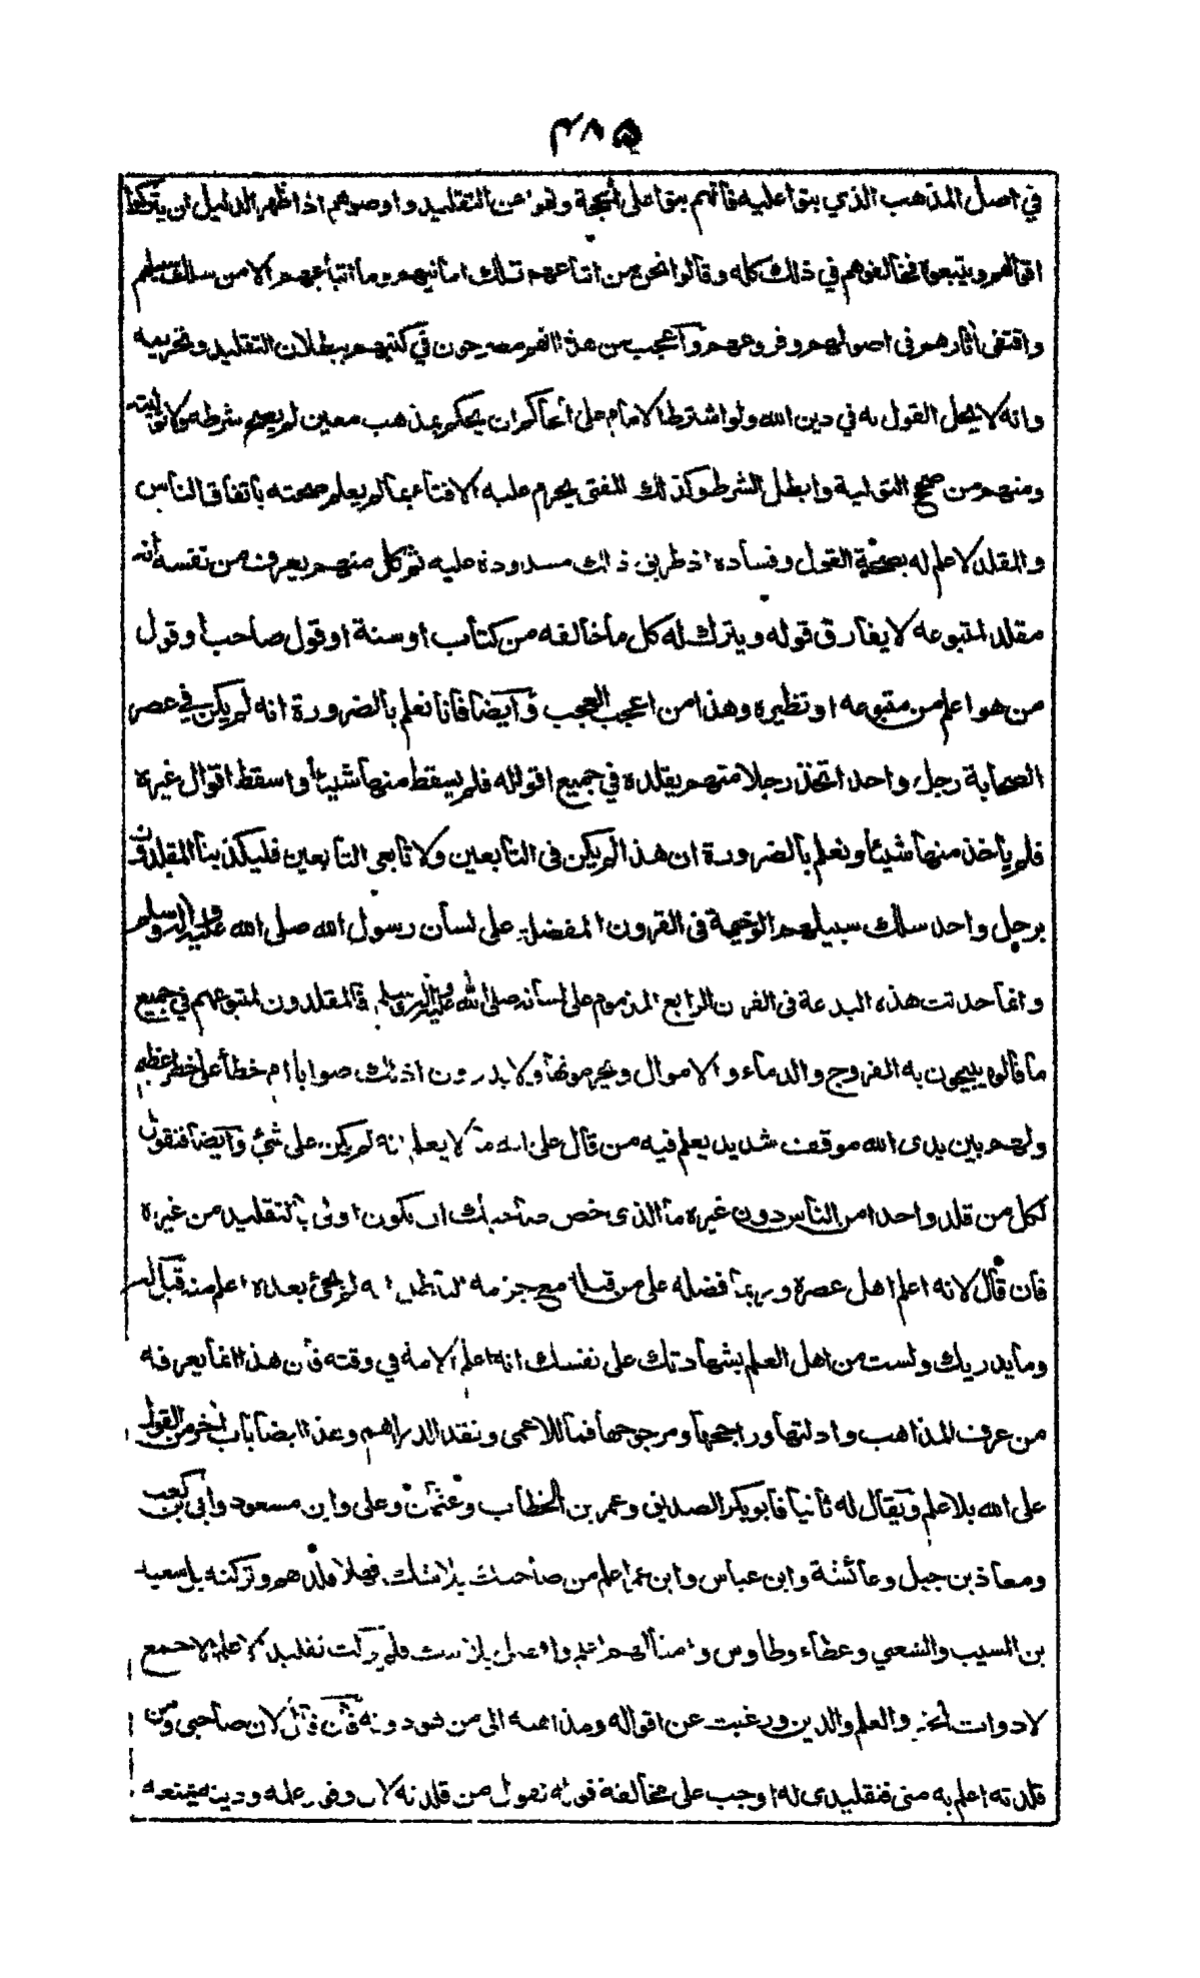 ٤٨٥
في اصل المذهب الذي بنوا عليه فانهم بنوا على الحجة ونهوا عن التقليد واوصوهم اذا ظهر الدليل ان يتركوا
اقوالهم ويتبعوه فخالفوهم في ذلك كله وقالوا نحن من اتباعهم تلك امانيهم وما اتباعهم الا من سلك سبيلهم
واقتفى اثارهم في اصولهم وفروعهم واعجب من هذا انهم مصرحون في كتبهم ببطلان التقليد وتحريمه
وانه لا يحل القول به في دين الله ولو اشترط الامام على الحاكم ان يحكم بمذهب معين لم يصح شرطه ولا توليته
ومنهم من صحح التولية وابطل الشرط وكذلك المفتي يحرم عليه الافتاء بما لم يعلم صحته باتفاق الناس
والمقلد لا علم له بصحة القول وفساده اذ طريق ذلك مسدودة عليه ثم كل منهم يعرف من نفسه انه
مقلد لمتبوعه لا يفارق قوله ويترك له كل ما خالفه من كتاب او سنة او قول صاحب او قول
من هو اعلم من متبوعه او نظيره وهذا من اعجب العجب وايضا فانا نعلم بالضرورة انه لم يكن في عصر
الصحابة رجل واحد اتخذ رجلا منهم يقلده في جميع اقواله فلم يسقط منها شيئا واسقط اقوال غيره
فلم ياخذ منها شيئا ونعلم بالضرورة ان هذا لم يكن في التابعين ولا تابعي التابعين فليكذبنا المقلدون
برجل واحد سلك سبيلهم الوخيمة في القرون المفضلة على لسان رسول الله صلى الله عليه واله وسلم
وانما حدثت هذه البدعة في القرن الرابع المذموم على لسانه صلى الله عليه واله وسلم فالمقلدون لمتبوعهم في جميع
ما قالوه يبيحون به الفروج والدماء والاموال ويحرمونها ولا يدرون اذلك صوابا ام خطأ على خطر عظيم
ولهم بين يدى الله موقف شديد يعلم فيه من قال على الله ما لا يعلم انه لم يكن على شئ وايضا فنقول
لكل من قلد واحدا من الناس دون غيره ما الذى خص صاحبك ان يكون اولى بالتقليد من غيره
فان قال لانه اعلم اهل عصره وربما فضله على من قبله مع جزمه الباطل انه لم يجئ بعده اعلم منه قيل له
وما يدريك ولست من اهل العلم بشهادتك على نفسك انه اعلم الامة في وقته فان هذا انما يعرفه
من عرف المذاهب وادلتها وراجحها ومرجوحها فما للاعمى ونقد الدراهم وهذا ايضا باب اخر من القول
على الله بلا علم ويقال له ثانيا فابوبكر الصديق وعمر بن الخطاب وعثمان وعلى وابن مسعود وابي بن كعب
ومعاذ بن جبل وعائشة وابن عباس وابن عمر اعلم من صاحبك بلا شك فهلا قلدتهم وتركته بل سعيد
بن المسيب والشعبي وعطاء وطاوس وامثالهم اعلم وافضل بلا شك فلم تركت تقليد الاعلم الاجمع
لادوات الخير والعلم والدين ورغبت عن اقواله ومذاهبه الى من هو دونه فان قال لان صاحبي ومن
قلدته اعلم به منى فتقليدى له اوجب على مخالفة قوله لقول من قلدته لان وفور علمه ودينه يمنعه